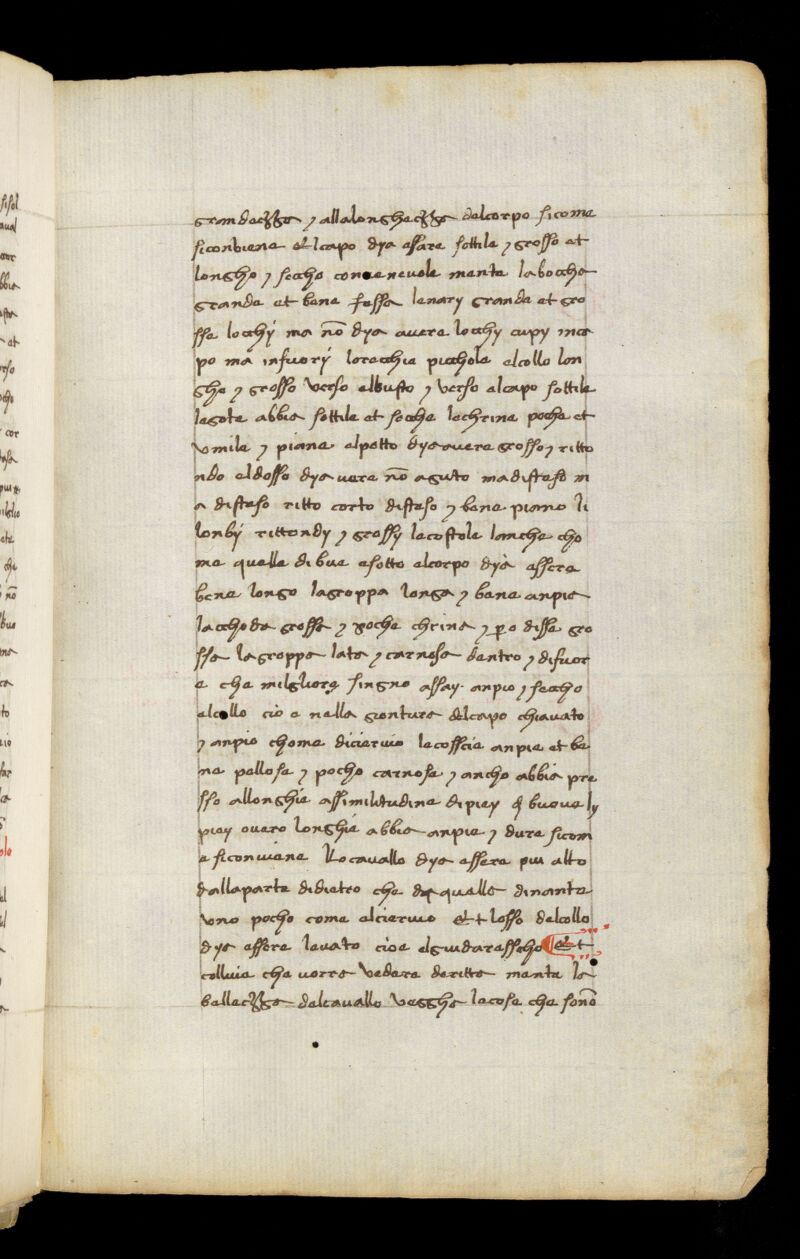 grandeçça ⁊ allalongheçça delcorpo sicome
siconbiene el capo dya essare sottile ⁊ grosso et
longho ⁊ seccho conuenevole mente labocche
grande et bene fessa lenary grande et gro
sse locchÿ ma nō dye avere locchy cupy ma
po ma infuorÿ lorecchie picchole elcollo lon
gho ⁊ grosso verso elbusto ⁊ verso alcapo sottile
legote abbia sottile et secche lechrine poche et
vmile ⁊ piane elpetto dyeavere grosso⁊ ritto
ndo eldosso dyeuere nō aguto madisteso m
a disteso ritto corto disteso ⁊ bene piano li
lonbÿ rittondy ⁊ grossÿ lecostole lunche cho
me quelle di bue esotto elcorpo dye essere
bene longo lagroppa longa ⁊ bene anpia
lacchoda grossa ⁊ poche chrine ⁊ però dissa gro
ssa lagroppa lata ⁊ carnosa dentro ⁊ difuor
e che milgliore singno assay anpio ⁊ seccho
elcollo cio e nella gontura delcapo chiavato
⁊ anpio chome diciervio lecosscie anpie et be
ne pellose ⁊ pocho carnose ⁊ ancho abbia pre
sso allonghie assimilitudine dipiey di buoue ly
piey ouero longhie abbia anpie ⁊ dure sicom
e siconuiene Llocavallo dye essere piu alto
dallaparte didietro che da quella dinante
vno pocho come alciervio Et losso delcollo
dye essere levato cioe elguidarasscho Et
colluia che uorra vedere deritta mente la
belleçça delcavallo vegghe lecose che sonō